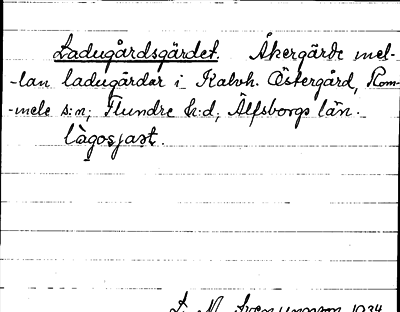 Ladugårdsgärdet. Åkergärde mel-
-lan ladugårdar i Kalvh. Östergård, Rom-
-mele s:n; Flundre h:d; Älfsborgs län.
lågosjast.
1934